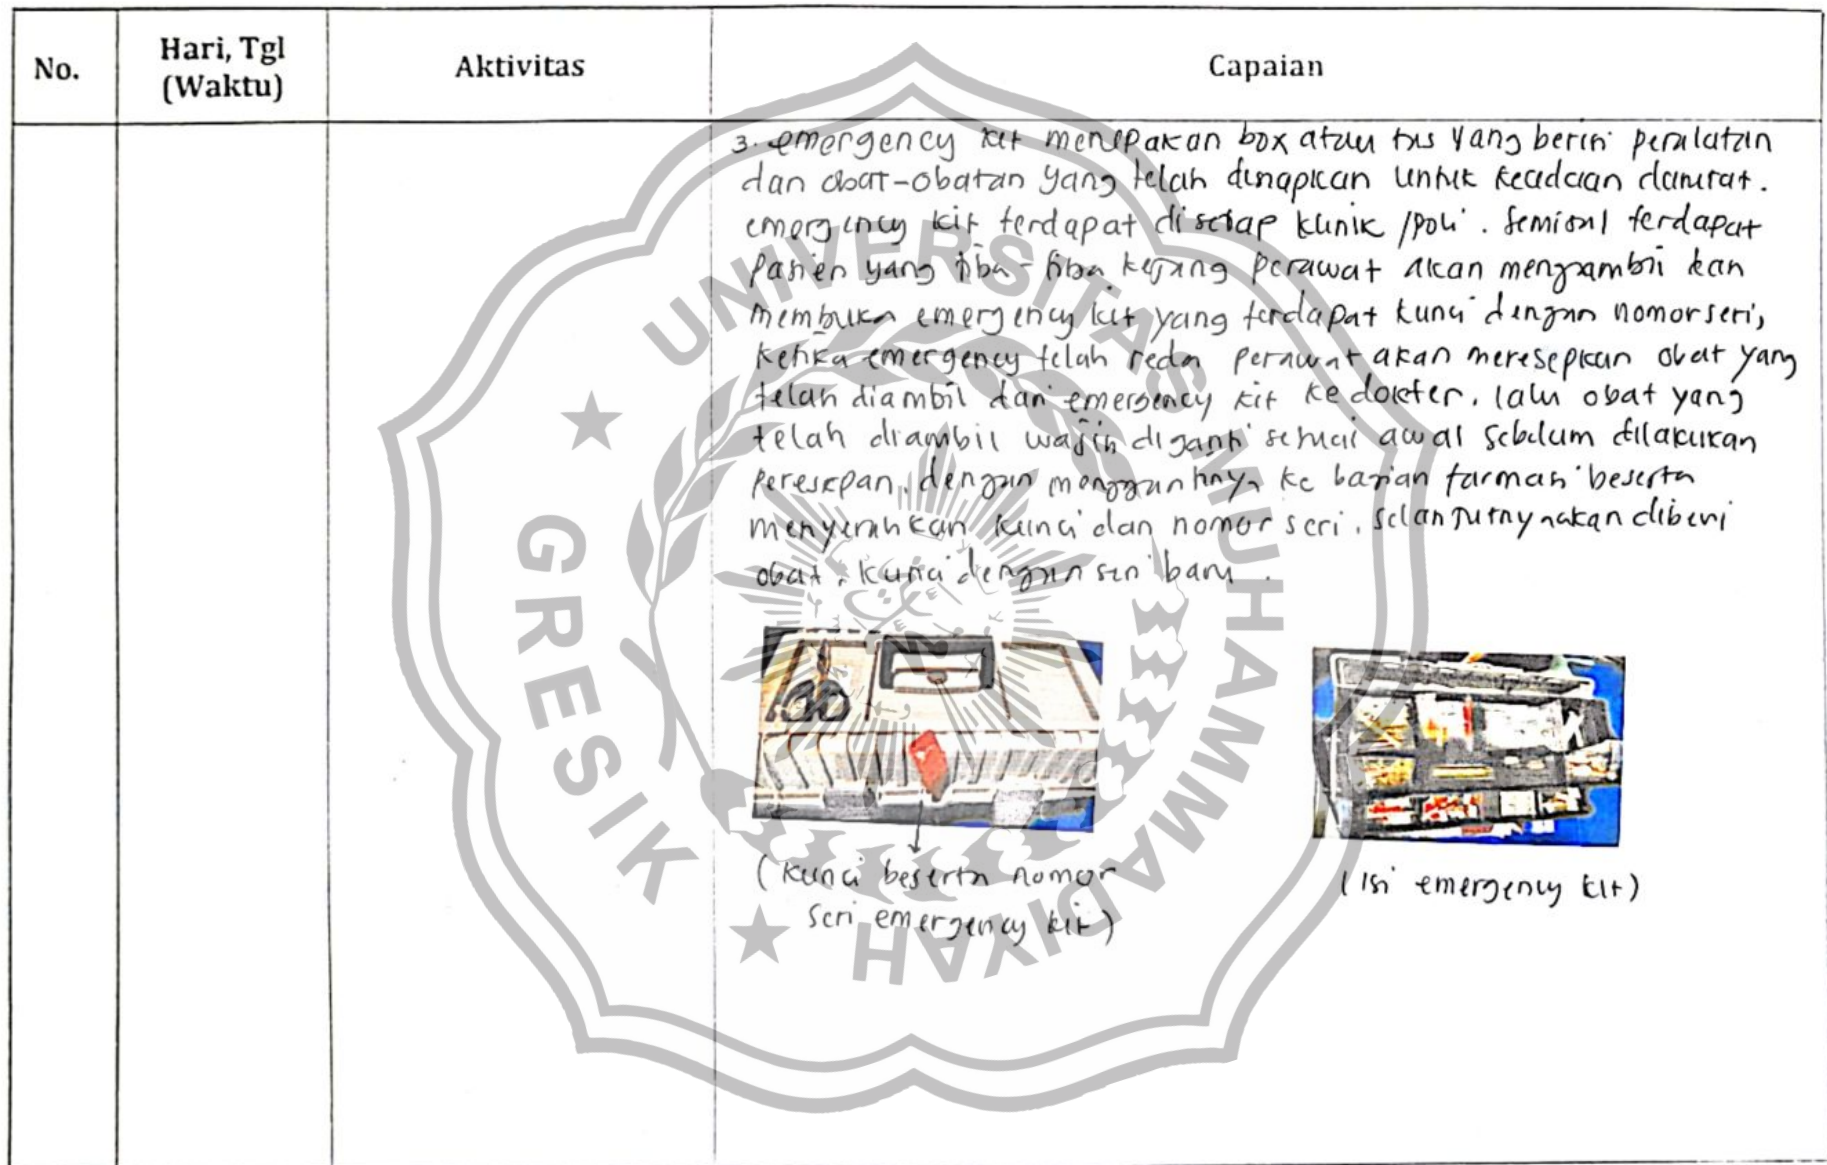 No.
Hari, Tgl
(Waktu)
Aktivitas
Capaian
3. emergency kit merupakan box atau tas yang berisi peralatan
dan obat-obatan yang telah disiapkan untuk keadaan darurat.
emergency kit terdapat disetiap klinik /poli. Semisal terdapat
pasien yang tiba-tiba kejang perawat akan mengambil dan
membuka emergency kit yang terdapat kunci dengan nomor seri,
ketika emergency telah reda perawat akan meresepkan obat yang
telah diambil dari emergency kit ke dokter. lalu obat yang
telah diambil wajib diganti sesuai awal sebelum dilakukan
peresepan, dengan menggantinya ke bagian farmasi beserta
menyerahkan kunci dan nomor seri. selanjutnya akan diberi
obat, kunci dengan seri baru.
(kunci beserta nomor
seri emergency kit)
(Isi emergency kit)
UNIVERSITAS MUHAMMADIYAH
GRESIK